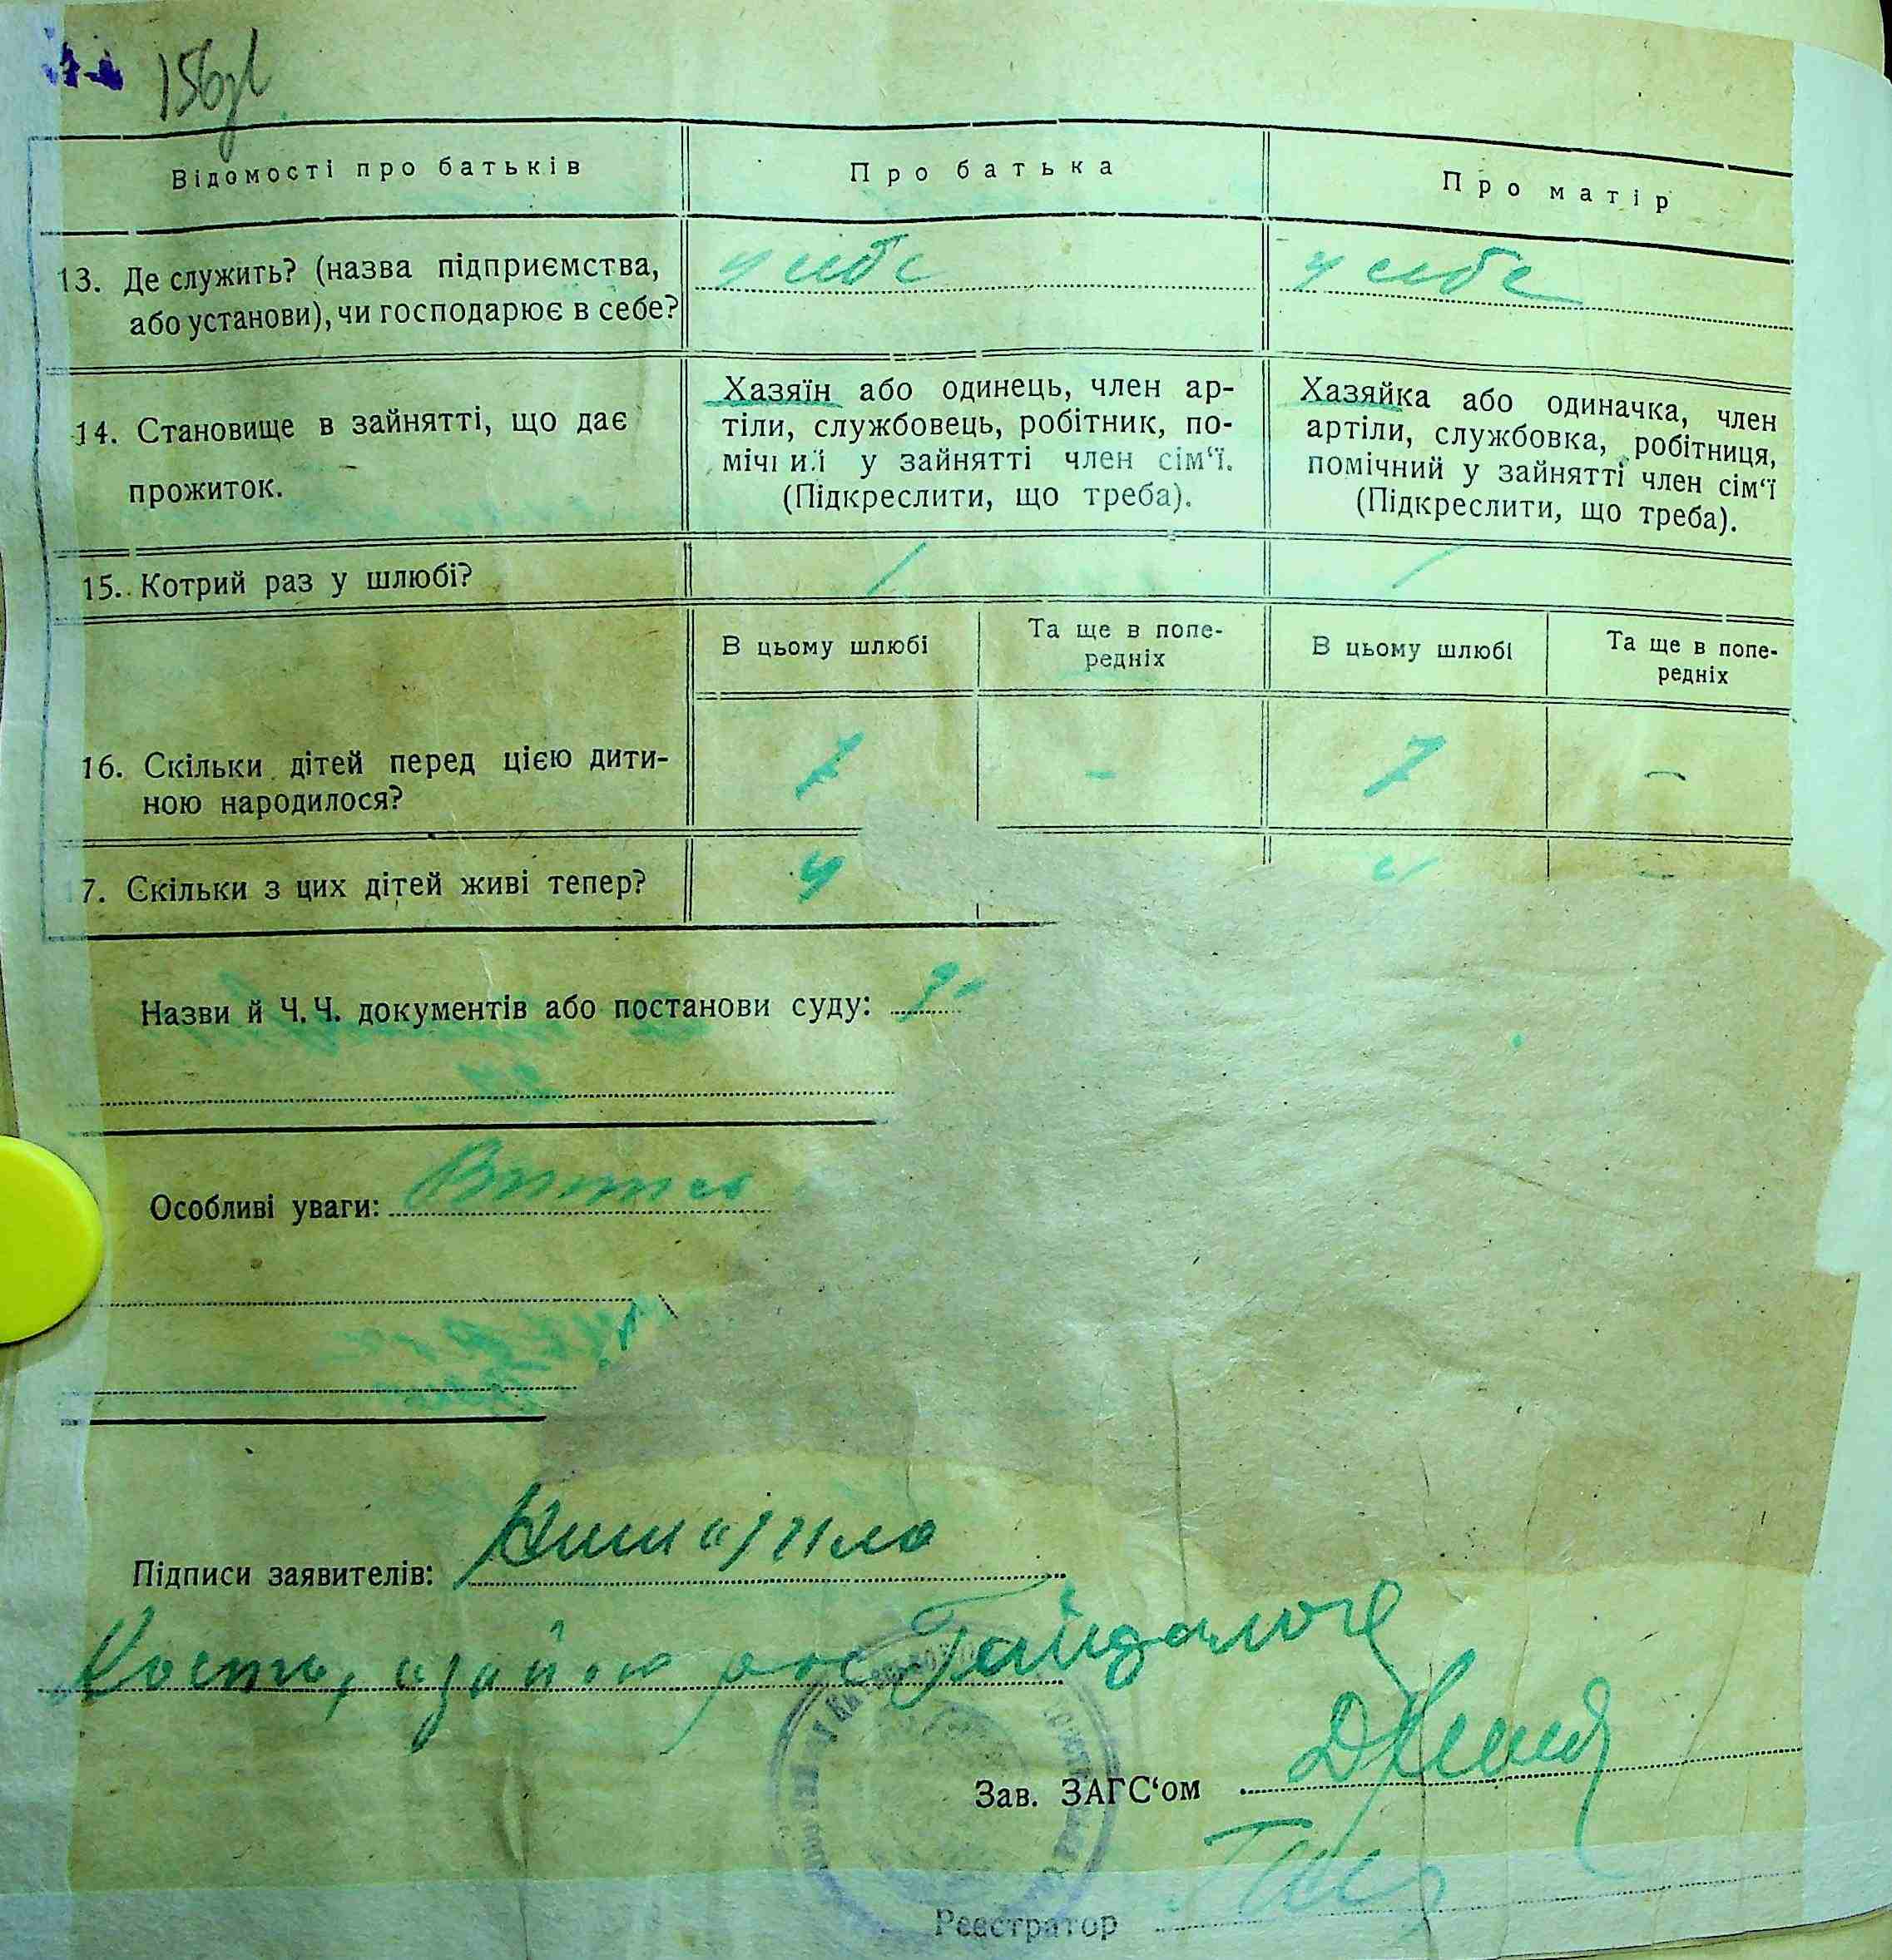 Відомості про батьків
Про батька
Про матір
13. Де служить? (назва підприємства,
або установи), чи господарює в себе?
у себе
у себе
14. Становище в зайнятті, що дає
прожиток.
Хазяїн або одинець, член ар-
тіли, службовець, робітник, по-
у зайнятті член сім‘ї.
(Підкреслити, що треба).
Хазяйка або одиначка, член
артіли, службовка, робітниця,
помічний у зайнятті член сім‘ї
(Підкреслити, що треба).
15. Котрий раз у шлюбі?
В цьому шлюбі
Та ще в попе-
редніх
В цьому шлюбі
Та ще в попе-
редніх
16. Скільки дітей перед цією дити-
ною народилося?
7
-
7
-
7. Скільки з цих дітей живі тепер?
4
Назви й Ч.Ч. документів або постанови суду:
Особливі уваги:
Підписи заявителів:
Зав. ЗАГС‘ом
Реєстратор